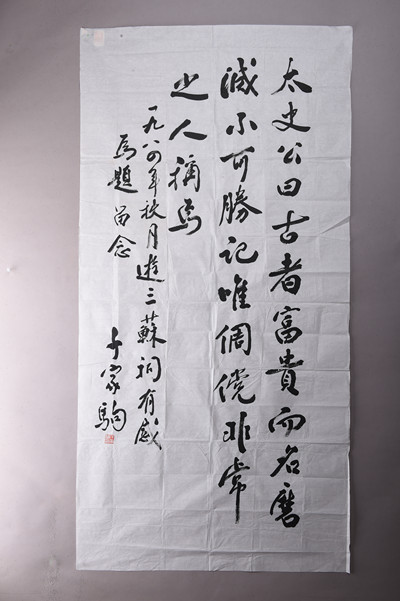 太史公曰古者富貴而名磨
滅不可勝記唯倜儻非常
之人稱焉
一九八四年秋月遊三蘇祠有感
為題留念
千家駒